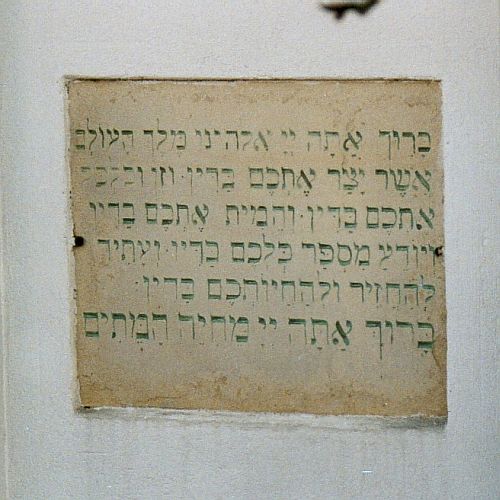 בָּרוּךְ אַתָּה יְיָ אֱלֹהֵינוּ מֶלֶךְ הָעוֹלָם
אֲשֶׁר יָצַר אֶתְכֶם בַּדִּין. וְזָן וְכִלְכֵּל
אֶתְכֶם בַּדִּין. וְהֵמִית אֶתְכֶם בַּדִּין
וְיוֹדֵעַ מִסְפַּר כֻּלְּכֶם בַּדִּין. וְעָתִיד
לְהַחֲזִיר וּלְהַחֲיוֹתְכֶם בַּדִּין.
בָּרוּךְ אַתָּה יְיָ מְחַיֵּה הַמֵּתִים